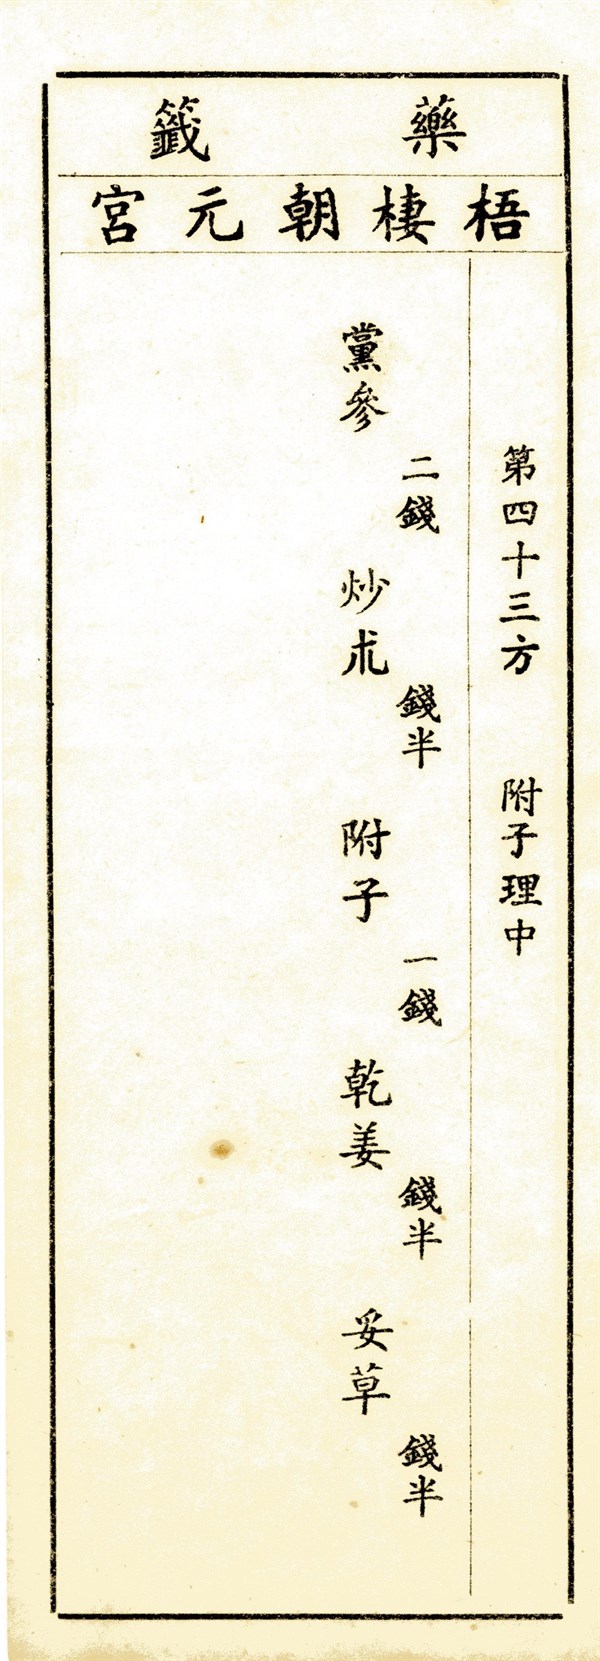 藥籤
梧棲朝元宮
第四十三方 附子理中
黨參 二錢 炒朮 錢半 附子 一錢 乾姜 錢半 妥草 錢半